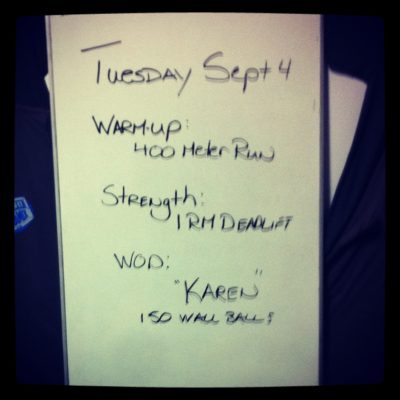 Tuesday Sept 4
WARM-UP:
400 Meter Run
Strength:
1 RM DEADLIFT
WOD:
"KAREN"
150 WALL BALL!